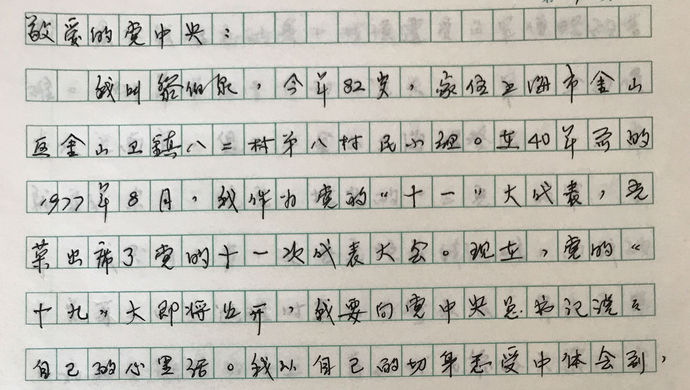 敬爱的党中央：
我叫 伯泉，今年82岁，家住上海市金山
区金山卫镇八二村第八村民小组。在40年前的
1977年8月，我作为党的“十一”大代表，光
荣出席了党的十一次代表大会。现在，党的“
十九”大即将召开，我要向党中央总书记说说
自己的心里话。我从自己的切身感受中体会到，